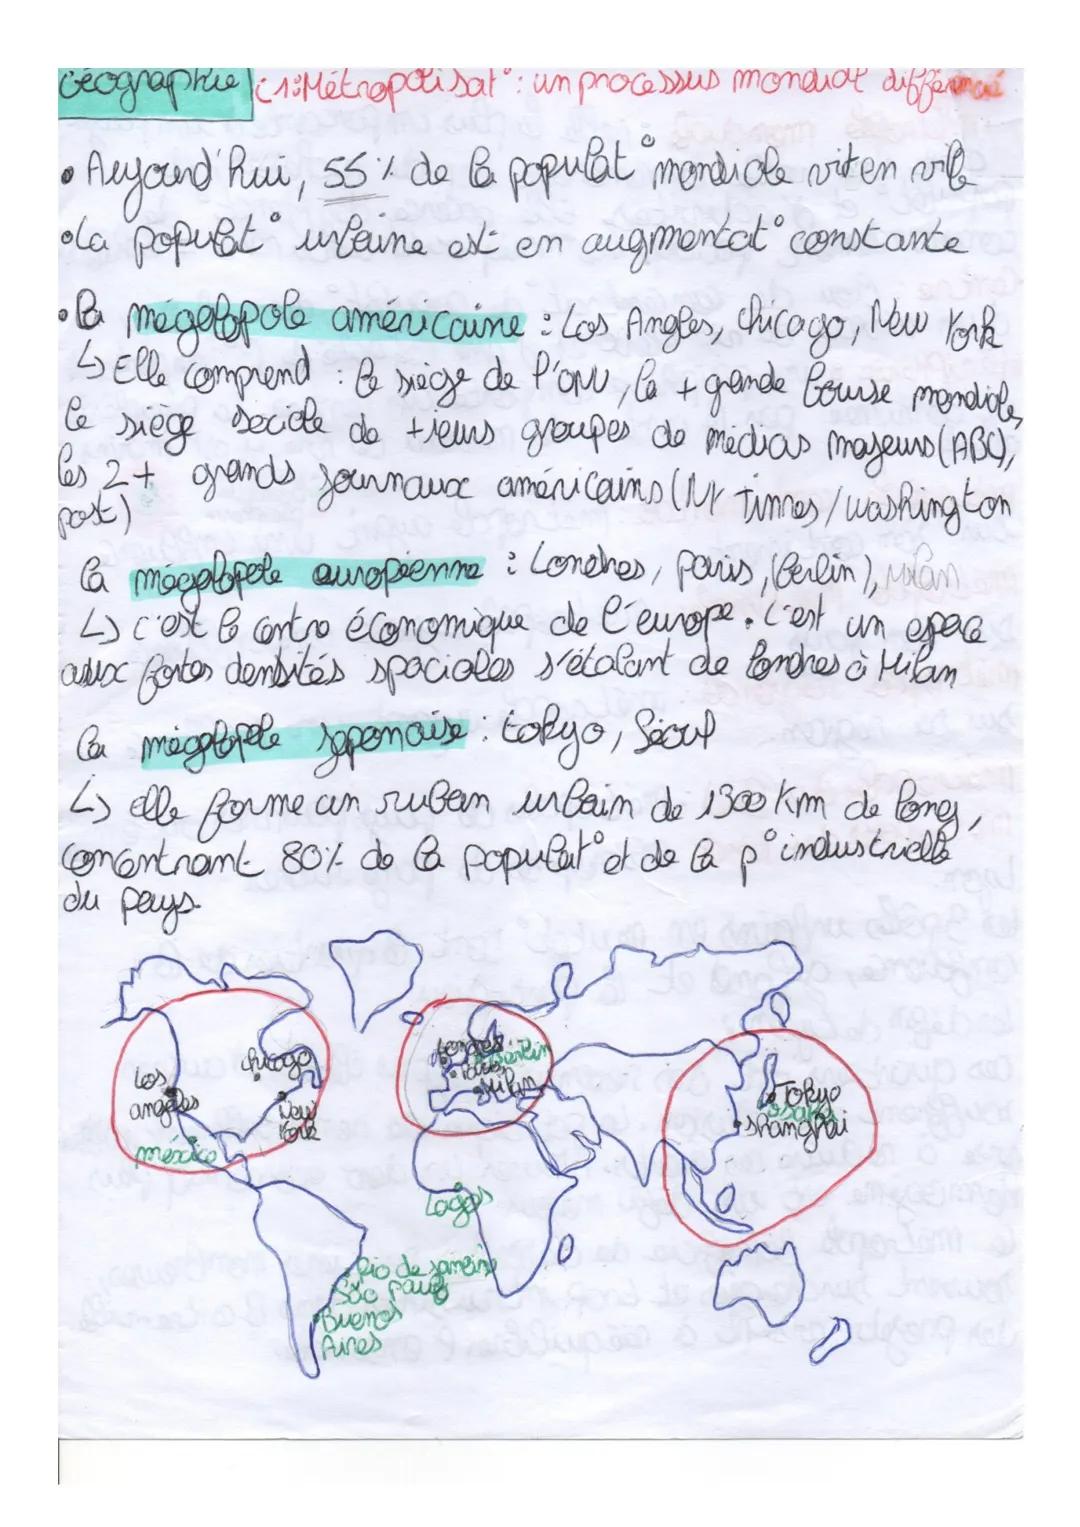 Géographie C1: Métropolisat° : un processus mondial différencié
• Aujourd'hui, 55 % de la populat° mondiale vit en ville
• La populat° urbaine est en augmentat° constante
• la mégalopole américaine : Los Angles, Chicago, New York
↳ Elle comprend : le siège de l'ONU, la + grande bourse mondiale,
le siège sociale de +ieurs groupes de médias majeurs (ABC),
les 2 + grands journaux américains (NY Times / Washington
post)
la mégalopole européenne : Londres, Paris, (Berlin), Milan
↳ c'est le centre économique de l'europe. C'est un espace
aux fortes densités spaciales s'étalant de Londres à Milan
la mégalopole japonaise : tokyo, Séoul
↳ elle forme un ruban urbain de 1300 Km de long,
concentrant 80% de la populat° et de la p° industrielle
du pays.
Los
angeles
Chicago
New
York
mexico
Londres
Berlin
Paris
Milan
Tokyo
osaka
shanghai
Lagos
Rio de janeiro
São paulo
Buenos
Aires